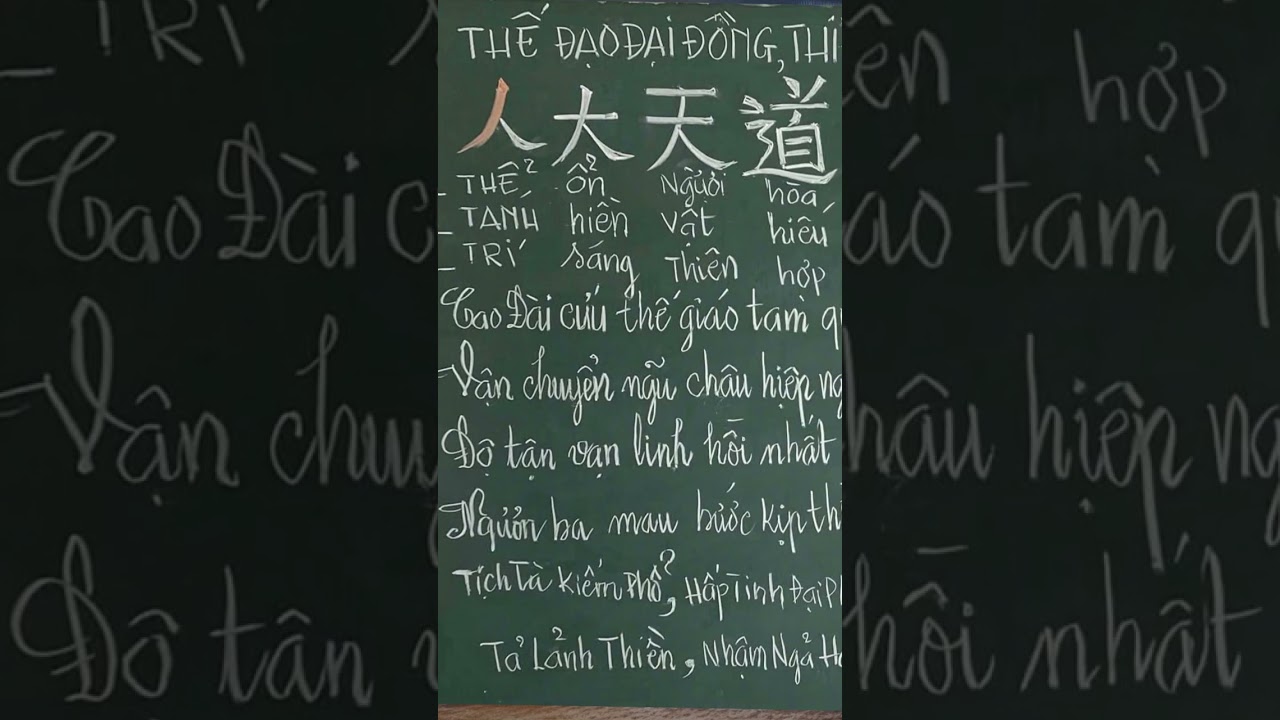 THẾ ĐẠO ĐẠI ĐỒNG, THÍ
人大天道
_ THỂ ổn Người hòa
_ TÁNH hiền vật hiếu
_ TRÍ sáng Thiên hợp
Cao Đài cứu thế giáo tam q
Vận chuyển ngũ châu hiệp ng
Độ tận vạn linh hồi nhất
Ngươn ba mau bước kịp th
Tích Tà Kiếm Phổ, Hấp Tinh Đại P
Tả Lảnh Thiền, Nhậm Ngả H